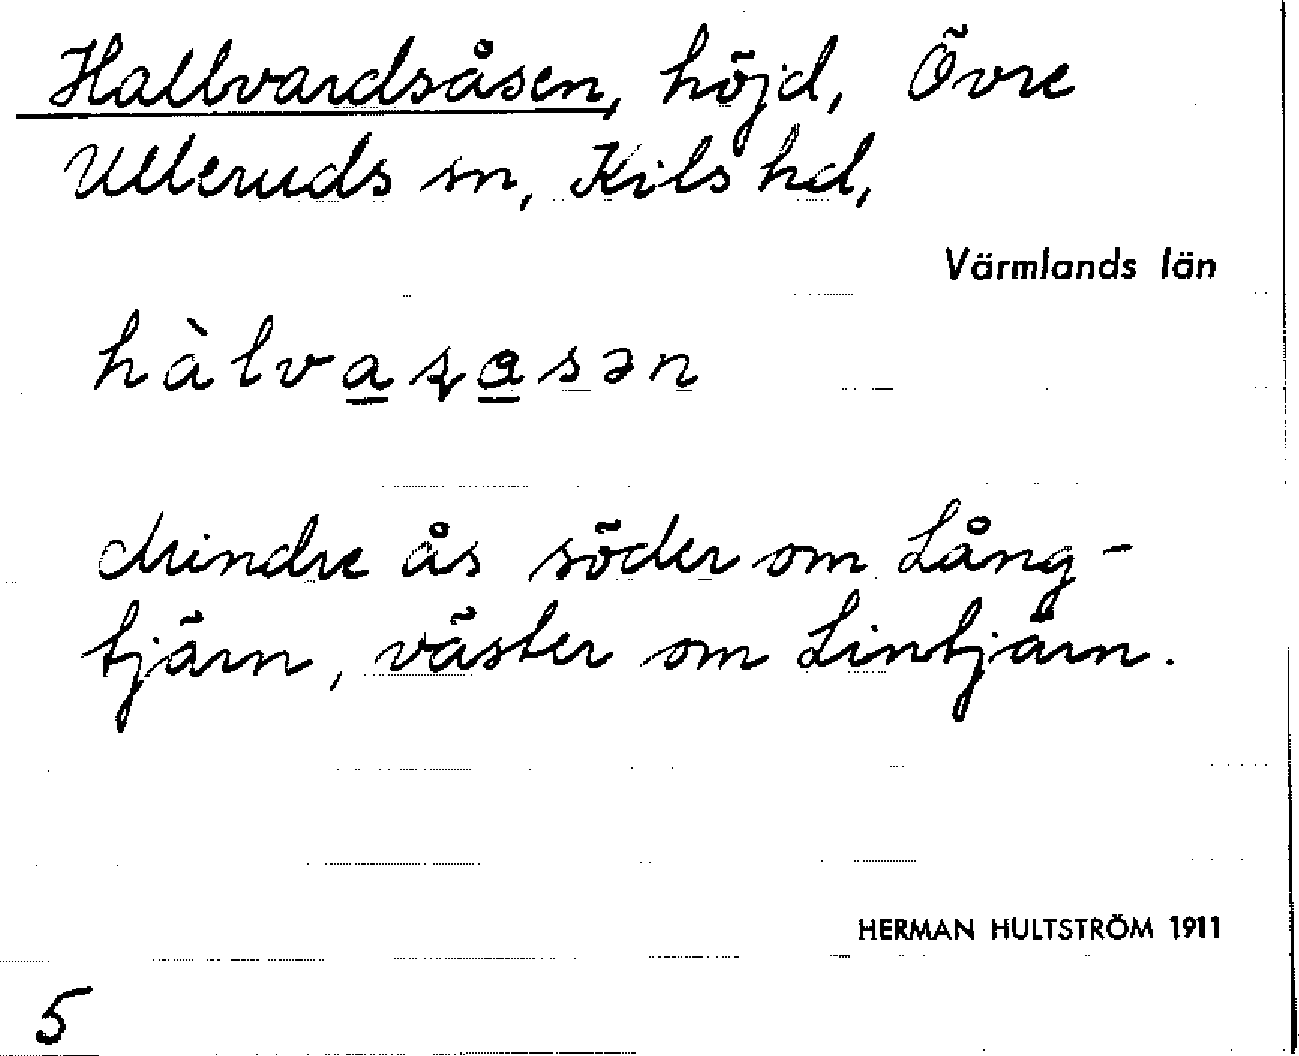 Hallvardsåsen, höjd, Övre
Ulleruds sn, Kils hd,
Värmlands län
hàlva̲ʂa̲sən
Mindre ås söder om Lång-
tjärn, väster om Lintjärn.
HERMAN HULTSTRÖM 1911
5